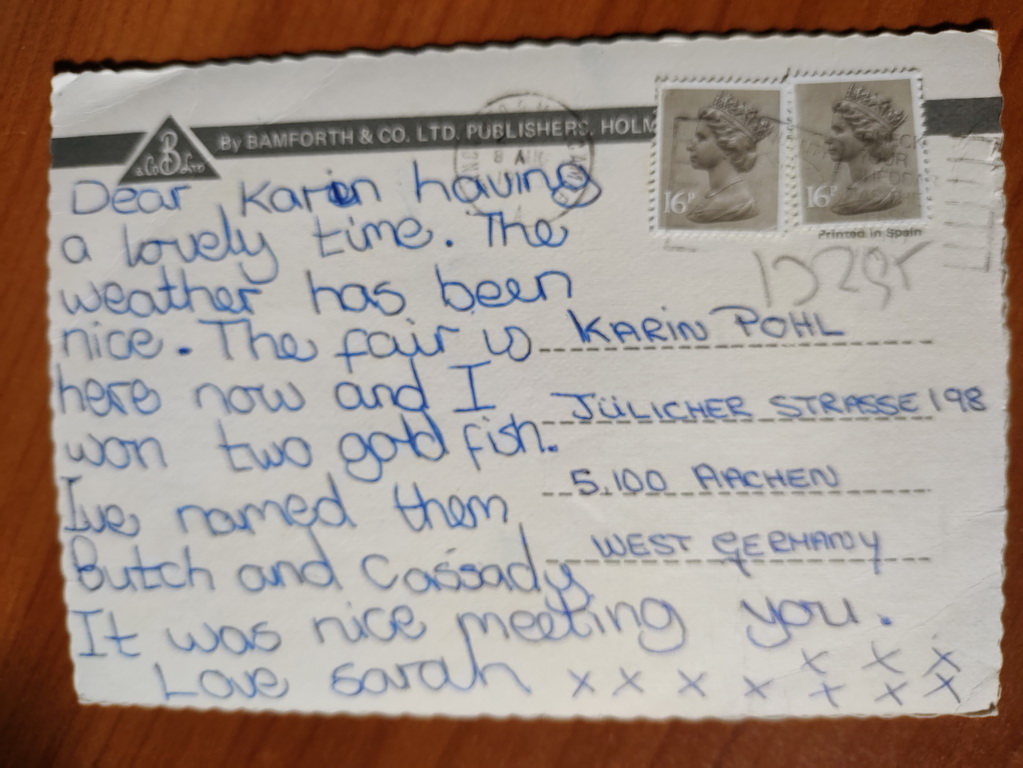 By BAMFORTH & CO. LTD. PUBLISHERS. HOLM
B
& Co Ltd
8 A
16P
16P
Printed in Spain
Dear Karin having
a lovely time. The
weather has been
nice. The fair is
here now and I
won two gold fish.
Ive named them
Butch and Cassady
It was nice meeting you.
Love sarah x x x x x x x
x x x
KARIN POHL
JÜLICHER STRASSE 198
5.100 AACHEN
WEST GERMANY